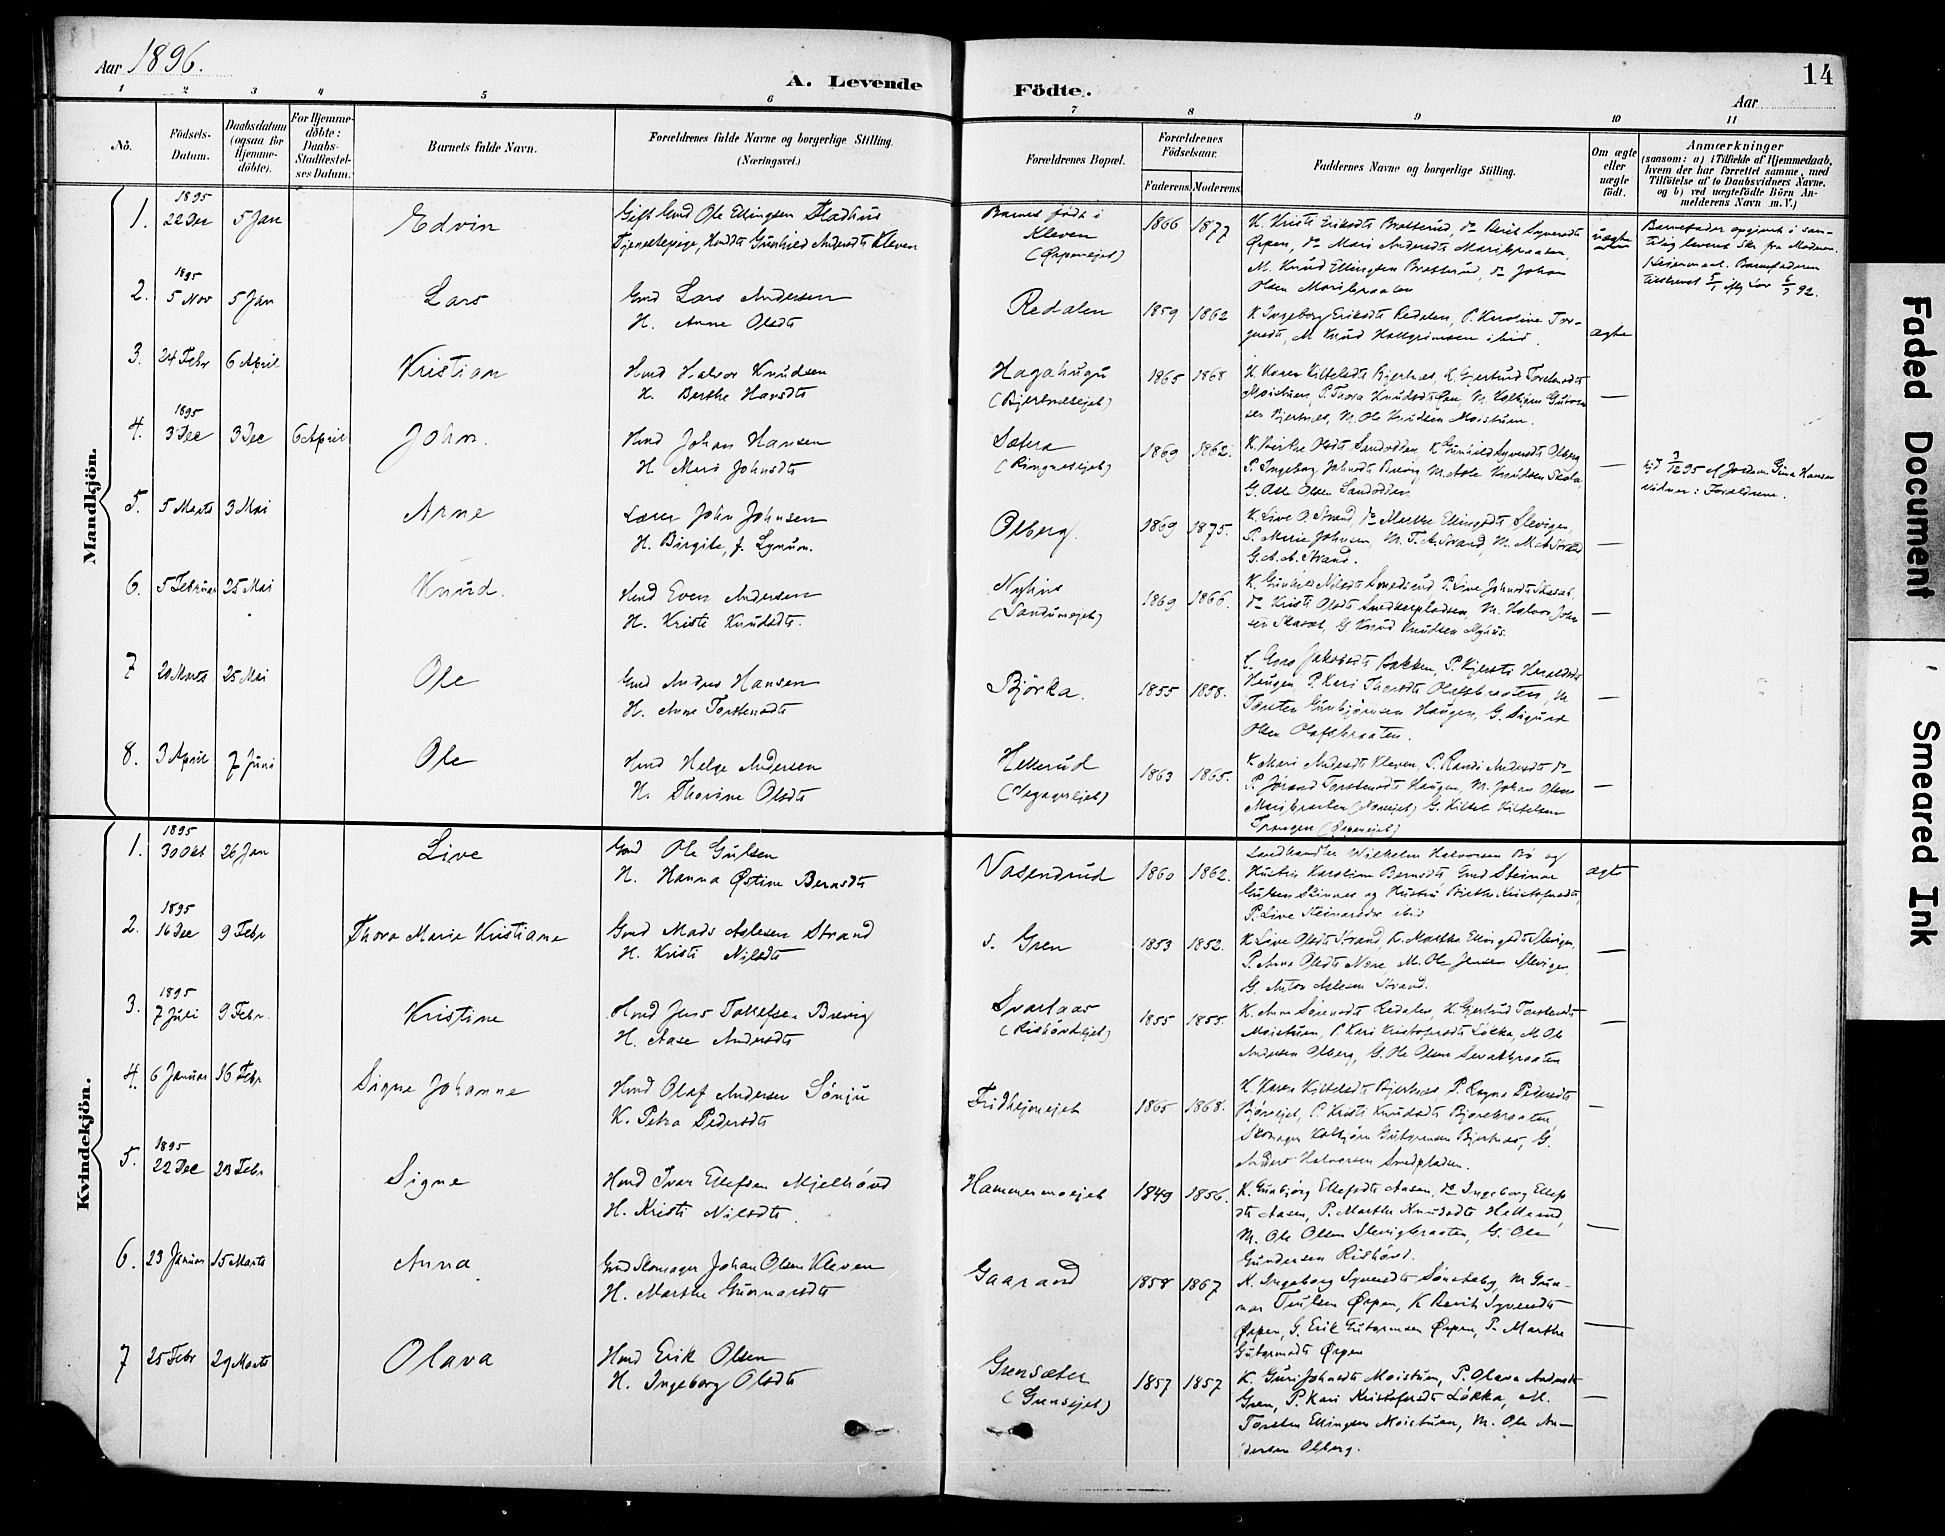 Aar 1896.
A. Levende Födte.
14
Aar
1 2 3 4 5 6 7 8 9 10 11
No.
Födsels-Datum.
Daabsdatum (ogsaa for Hjemme-döbte).
For Hjemme-döbte: Daabs-Stadfæstel-ses Datum.
Barnets fulde Navn.
Forældrenes fulde Navne og borgerlige Stilling.
(Næringsvei.)
Forældrenes Bopæl.
Forældrenes Födselsaar.
Faderens. Moderens.
Faddernes Navne og borgerlige Stilling.
Om ægte eller uægte födt.
Anmærkninger
(saasom: a) i Tilfælde af Hjemmedaab,
hvem der har forrettet samme, med
Tilföielse af to Daabsvidners Navne,
og b) ved uægtefödte Börn An-
melderens Navn m. V.)
Mandkjön.
1. 1895 22 Dec 5 Jan Edvin Gift Gmd Ole Ellingsen Stadhus
Tjenestepige, Hmdt Gunhild Andersdt Kleven
Barnet født i Kleven (Ørpeneiet) 1866 1877
K. Kristi Eriksdt Bratterud, do Berit Syversdt
Ørpen, do Mari Andersdt Maribraaten,
M. Knud Ellingsen Bratterud, do Johan
Olsen Maribraaten
uægte
Barnefader opgivet i sam-
tidig leveret Skr. fra Moderen.
Barnefaderen
tilskrevet 5/1 ifg Lov 6/7 92.
2. 1895 5 Nov 5 Jan Lars Gmd Lars Andersen
H. Anne Olsdt
Redalen 1859 1862
K Ingeborg Eriksdt Redalen, P. Karoline Tor-
gersdt, M Knud Hallgrimsen ibid.
ægte
3. 24 Febr 6 April Kristian Hmd Halvor Knudsen
H. Berthe Hansdt
Hagahugu (Bjertneseiet) 1865 1868
K. Karen Kittelsdt Bjertnes, K. Gjertrud Torstensdt
Moistuen, P. Thora Knudsdt Øen, M. Kolbjørn Guttorm-
sen Bjertnes, M. Ole Knudsen Moistuen.
—
4. 1895 3 Dec 3 Dec 6 April John. Hmd Johan Hansen
H. Mari Johnsdt
Sætra (Ringneseiet) 1869 1862.
K. Berthe Olsdt Sandodden, K Gunhild Syversdt Olberg
P. Ingeborg Johnsdt Brevig, M. Asle Knudsen Skala,
G. Ole Olsen Sandodden
—
3/12 95 af Jordem Gina Hansen
Vidner: Forældrene.
5. 5 Marts 3 Mai Arne Lærer John Johnsen
H. Birgite, f. Lynum.
Olberg. 1869 1875.
K. Live O. Strand, do Marthe Ellingsdt Slevigen,
P. Marie Johnsen, M. T. A. Strand, M. M. A. Strand
G. A. A. Strand.
—
6. 5 Februar 25 Mai Knud. Hmd Even Andersen
H. Kristi Knudsdt.
Nyhus (Sandumeiet) 1869 1866.
K. Gunhild Nilsdt Smedsrud, P. Live Johnsdt Skaset
do Kristi Olsdt Snedkerpladsen, M. Halvor John-
sen Skaset, G Knud Knudsen Nyhus.
—
7 20 Marts 25 Mai Ole Gmd Anders Hansen
H. Anne Torstensdt
Björka. 1855 1858.
K. Guro Jakobsdt Bakken, P. Kjersti Haraldsdt
Haugen, P. Kari Thorsdt Olafsbraaten, M
Torsten Gunbjørnsen Haugen, G. Sigurd
Olsen Olafsbraaten.
—
8. 3 April 7 Juni Ole Hmd Helge Andersen
H. Thorine Olsdt
Hellerud 1863 1865.
K Mari Andersdt Kleven, P. Randi Andersdt do
P. Jørand Torstensdt Haugen, M. Johan Olsen
Maribraaten G. Kittel Kittelsen
(Ørpeneiet)
—
Kvindekjön.
1. 1895 30 Okt 26 Jan Live Gmd Ole Gulsen
H. Hanna Østine Berntsdt
Vasendrud 1860 1862.
Landhandler Wilhelm Halvorsen Bø og
Hustru Karoline Berntsdt Gmd Steinar
Gulsen Skinnes og Hustru Birthe Kristofersdt
P. Live Steinarsdtr ibid
ægte
2. 1895 16 Dec 9 Febr Thora Marie Kristiane Gmd Mads Aslesen Strand
H. Kristi Nilsdt
s. Gren 1853 1852.
K Live Olsdt Strand, K. Marthe Ellingsdt Slevigen,
P. Anne Olsdt Nøre, M. Ole Jensen Slevigen
G. Anton Aslesen Strand.
—
3. 1895 7 Juli 9 Febr. Kristine Hmd Jens Tollefsen Brevig
H. Aase Andersdt
Svartaas (Rishövdeiet) 1855 1855.
K. Anne Sørensdt Redalen, K. Gjertrud Torstensdt
Moistuen, P. Kari Kristofersdt Løkka, M. Ole
Andersen Olberg, G. Ole Olsen
—
4. 6 Januar 16 Febr Signe Johanne Hmd Olaf Andersen Sønju
K. Petra Pedersdt
Fridheimeiet 1865 1868.
K. Karen Kittelsdt Bjertnes P. Ragna Pedersdt
P. Kristi Knudsdt Bjørebraaten
Skomager Kolbjørn Guttormsen Bjertnes, G.
Anders Halvorsen Smedpladsen.
—
5. 1895 22 Dec 23 Febr Signe Hmd Ivar Ellefsen Mjelhövd
H. Kristi Nilsdt.
Hammermoeiet 1849 1856.
K. Gunbjörg Ellefsdt Aasen, do Ingeborg Ellefs-
dt Aasen, P. Marthe Knudsdt Hellerud,
M. Ole Olsen Slevigbraaten, G. Ole
Gundersen Rishövd.
—
6. 23 Januar 15 Marts Anna Gmd Skomager Johan Olsen Kleven
H. Marthe Gunnarsdt
Gaarand 1858 1867
K. Ingeborg Syversdt Sønsteby, M Gun-
nar Truelsen Ørpen, K Berit Syversdt
Ørpen, G. Erik Guttormsen Ørpen, P. Marthe
Guttormsdt Ørpen
—
7 25 Febr 29 Marts Olava Hmd Erik Olsen
H. Ingeborg Olsdt
Grensæter (Grenseiet) 1857 1857
K. Guri Johnsdt Moistuen, P. Olava Andersdt
Gren, P. Kari Kristofersdt Løkka, M.
Torsten Ellingsen Moistuen, M. Ole An-
dersen Olberg.
—
Faded Document
Smeared Ink